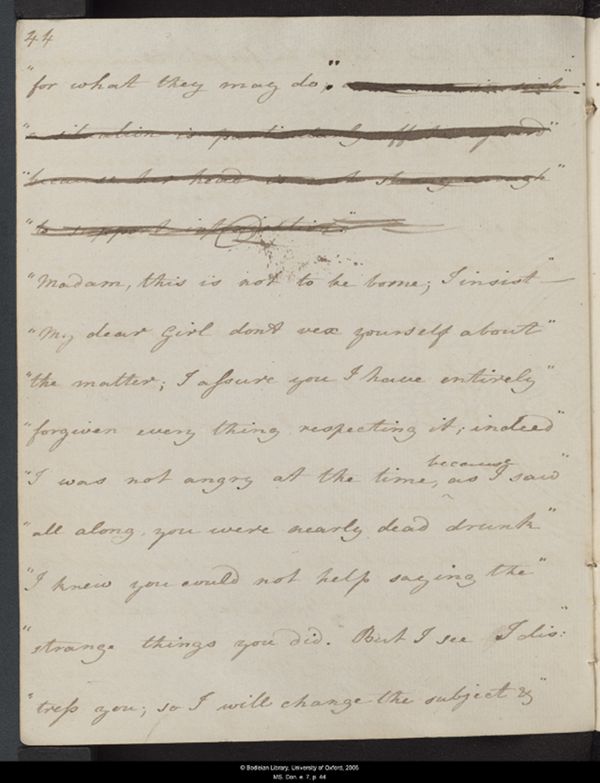 44
"for what they may do;"
"a situation is particularly
"because her head is not strong enough"
"to support intoxication."
"Madam, this is not to be borne; I insist—
"My dear Girl dont vex yourself about"
"the matter; I assure you I have entirely"
"forgiven every thing respecting it; indeed"
"I was not angry at the time, because as I saw"
"all along, you were nearly dead drunk"
"I knew you could not help saying the"
"strange things you did. But I see I dis:"
"tress you; so I will change the subject &"
© Bodleian Library, University of Oxford, 2005
MS. Don. e. 7, p. 44